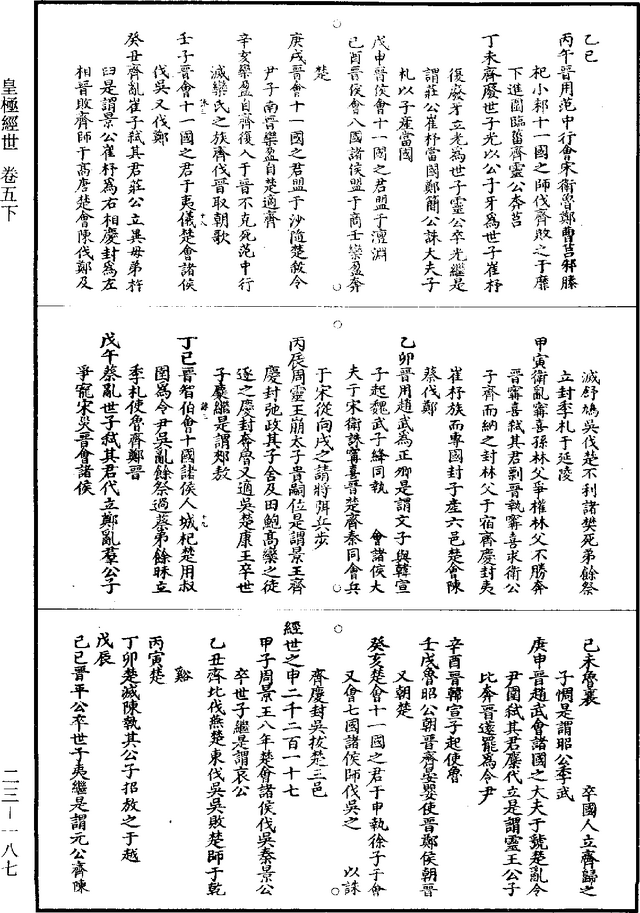 皇極經世 卷五下
二三—一八七
乙巳
丙午晉用范中行會宋衛魯鄭曹莒邾滕
杞小邾十一國之師伐齊敗之于靡
下進圍臨菑齊靈公奔莒
丁未齊廢世子光以公子牙爲世子崔杼
復廢牙立光爲世子靈公卒光繼是
謂莊公崔杼當國鄭簡公誅大夫子
札以子產當國
戊申晉侯會十一國之君盟于澶淵
己酉晉侯會八國諸侯盟于商壬欒盈奔
楚
庚戌晉會十一國之君盟于沙隨楚敘令
尹子南晉欒盈自楚適齊
辛亥欒盈自齊復入于晉不克死范中行
滅欒氏之族齊伐晉取朝歌
壬子晉會十一國之君于夷儀楚會諸侯
伐吳又伐鄭
癸丑齊亂崔子弒其君莊公立異母弟杵
臼是謂景公崔杼爲右相慶封爲左
相晉敗齊師于高唐楚會陳伐鄭及
滅舒鳩吳伐楚不利諸樊死弟餘祭
立封季札于延陵
甲寅衛亂甯喜孫林父爭權林父不勝奔
晉甯喜弒其君剽晉執甯喜求衛公
子齊而納之封林父于宿齊慶封夷
崔杼族而專國封子產六邑楚會陳
蔡伐鄭
乙卯晉用趙武爲正卿是謂文子與韓宣
子起魏武子絳同執 會諸侯大
夫于宋衛誅甯喜晉楚齊秦同會兵
于宋從向戌之請特弭兵步
丙辰周靈王崩太子貴嗣位是謂景王齊
慶封弛政其子舍及田鮑高欒之徒
逐之慶封奔魯又適吳楚康王卒世
子麇繼是謂郟敖
丁巳晉智伯會十國諸侯人城杞楚用叔
圍爲令尹吳亂餘祭過蔡弟餘眛立
季札使魯齊鄭晉
戊午蔡亂世子弒其君代立鄭亂羣公子
爭寵宋災晉會諸侯
己未魯襄 卒國人立齊歸之
子惆是謂昭公季武
庚申晉趙武會諸國之大夫于虢楚亂令
尹圍弒其君麇代立是謂靈王公子
比奔晉薳罷爲令尹
辛酉晉韓宣子起使魯
壬戌魯昭公朝晉齊晏嬰使晉鄭侯朝晉
又朝楚
癸亥楚會十一國之君于申執徐子于會
又會七國諸侯師伐吳之 以誅
齊慶封吳拔楚三邑
經世之申二千二百一十七
甲子周景王八年楚會諸侯伐吳秦景公
卒世子繼是謂哀公
乙丑齊比伐燕楚東伐吳吳敗楚師于乾
谿
丙寅楚
丁卯楚滅陳執其公子招放之于越
戊辰
己巳晉平公卒世子夷繼是謂元公齊陳